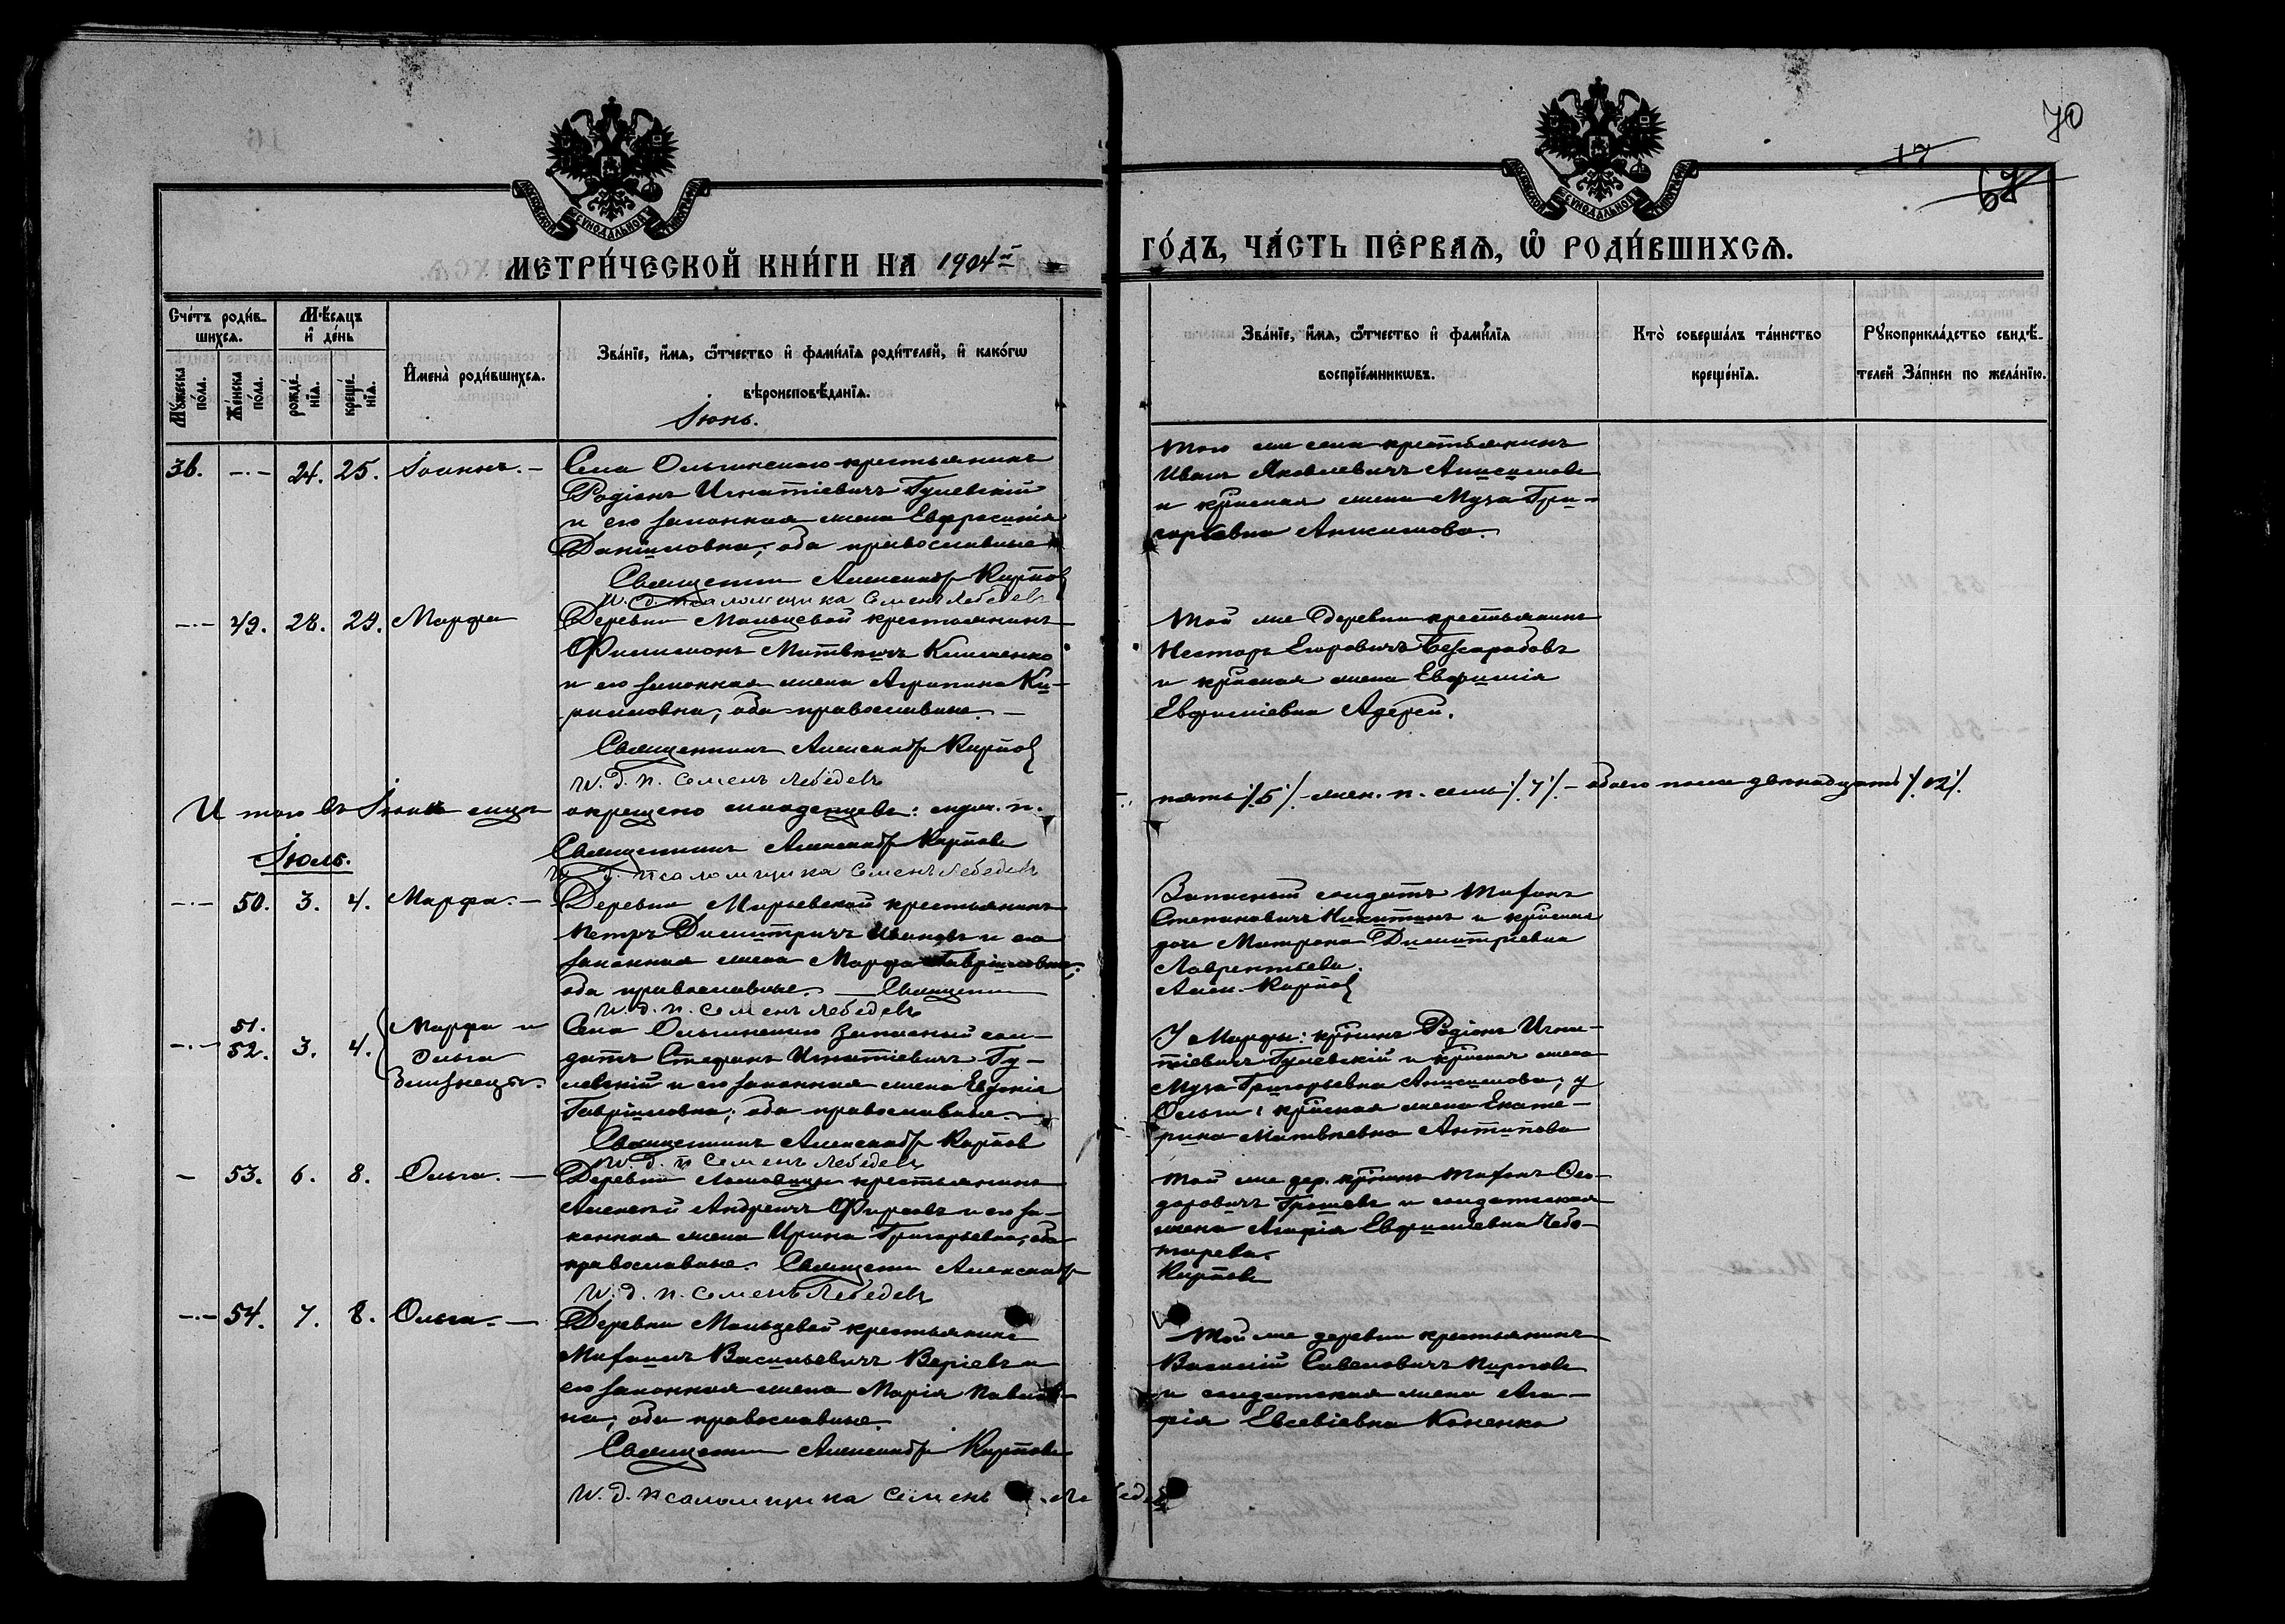 70
17
67
МЕТРИ́ЧЕСКОЙ КНИ́ГИ НА 1904й
ГО́ДЪ, ЧА́СТЬ ПЕ́РВАѦ, Ѽ РОДИ́ВШИХСѦ.
Сче́тъ роди́в-
шихсѧ.
Мꙋ́жеска по́ла.
Же́нска по́ла.
Мѣ́сѧцъ
и҆ де́нь
рожде́нїѧ.
креще́нїѧ.
И҆мена̀ роди́вшихсѧ.
Зва́нїе, и҆́мѧ, ѻ҆́тчество и҆ фами́лїѧ роди́телей, и҆ како́гѡ
вѣроисповѣ́данїѧ.
Зва́нїе, и҆́мѧ, ѻ҆́тчество и҆ фами́лїѧ
воспрїе́мникѡвъ.
Кто̀ соверша́лъ та́инство
креще́нїѧ.
Рꙋкоприкла́дство свидѣ́-
телей за́писи по жела́нїю.
Іюнь.
36. -·- 24. 25. Іоаннъ. -
Села Ольгинскаго крестьянинъ
Родіонъ Игнатіевичъ Гулевскій
и его законная жена Евфросинія
Даніиловна; оба православные
Священникъ Александръ Карпов
И. д. псаломщика Семенъ Лебедевъ
Того же села крестьянинъ
Иванъ Яковлевичъ Анисимовъ
и крестная жена Муза Гри-
горьевна Анисимова.
-·- 49. 28. 29. Марфа
Деревни Мальцевой крестьянинъ
Филимонъ Матвѣичъ Клименко
и его законная жена Агрипина Ки-
рилловна; оба православные. -
Священникъ Александръ Карпов
И. д. п. Семенъ Лебедевъ
Той же деревни крестьянинъ
Несторъ Егоровичъ Безсарабовъ
и крестная жена Евфимія
Евфиміевна
Итого въ Іюнѣ м-цѣ окрещено младенцевъ: муж. п.
пять /.5/. жен. п. семь /.7/. - обоего пола двѣнадцать /.12/.
Священникъ Александръ Карповъ
И. д. псаломщика Семенъ Лебедевъ
Іюль.
-·- 50. 3. 4. Марфа. -
Деревни Марьевской крестьянинъ
Петръ Димитричъ Ивановъ и его
законная жена Марфа Гавріиловна;
оба православные. - Священникъ
И. д. п. Семенъ Лебедевъ
Запасный солдатъ
Степановичъ Никитинъ и крестная
дочь Матрона Димитріевна
Лаврентьева.
Алек. Карпов
-·- 51. 52. 3. 4. Марфа и
Ольга
Близнецы.
Села Ольгинскаго запасный сол-
датъ Стефанъ Игнатіевичъ Гу-
левскій и его законная жена Евдокія
Гавріиловна; оба православные. -
Священникъ Александръ Карпов
И. д. п Семенъ Лебедевъ
У Марфы: кр-нинъ Родіонъ Игна-
тіевичъ Гулевскій и крестная жена
Муза Григорьевна Анисимова; у
Ольги: крестная жена Екате-
рина Матвѣевна Антипова
- 53. 6. 8. Ольга. -
Деревни крестьянинъ
Алексѣй Андреичъ Фирсовъ и его за-
конная жена Ирина Григорьевна; оба
православные. Священникъ Александръ
И. д. п. Семенъ Лебедевъ
Той же дер. кр-нинъ Ѳео-
доровичъ и солдатская
жена Агафія Евфиміевна Чебо-
тарева.
Карповъ
-·- 54. 7. 8. Ольга. -
Деревни Мальцевой крестьянинъ
Васильевичъ и
его законная жена Марія Павлов-
на; оба православные.
Священникъ Александръ Карповъ
И. д. псаломщика Семенъ Лебедевъ
Той же деревни крестьянинъ
Василій Савеловичъ Карповъ
и солдатская жена Ага-
фія Евсевіевна Коненко